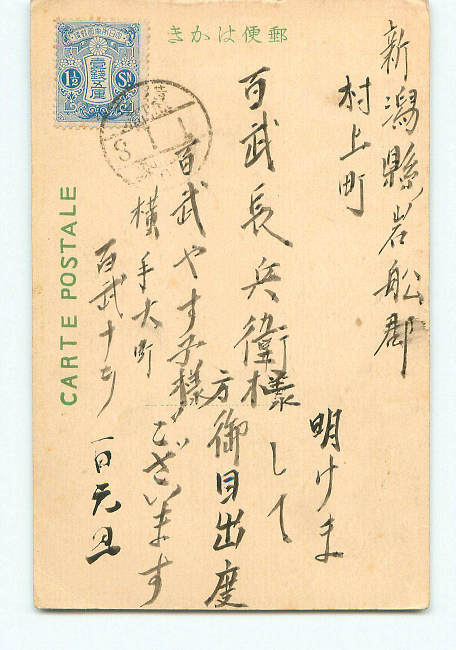 郵便はかき
CARTE POSTALE
1½ Sn.
新潟縣岩船郡
村上町
百武長兵衛様
方
百武やす子様
明けま
して
御目出度
ございます
横手大町
百武
一日元旦